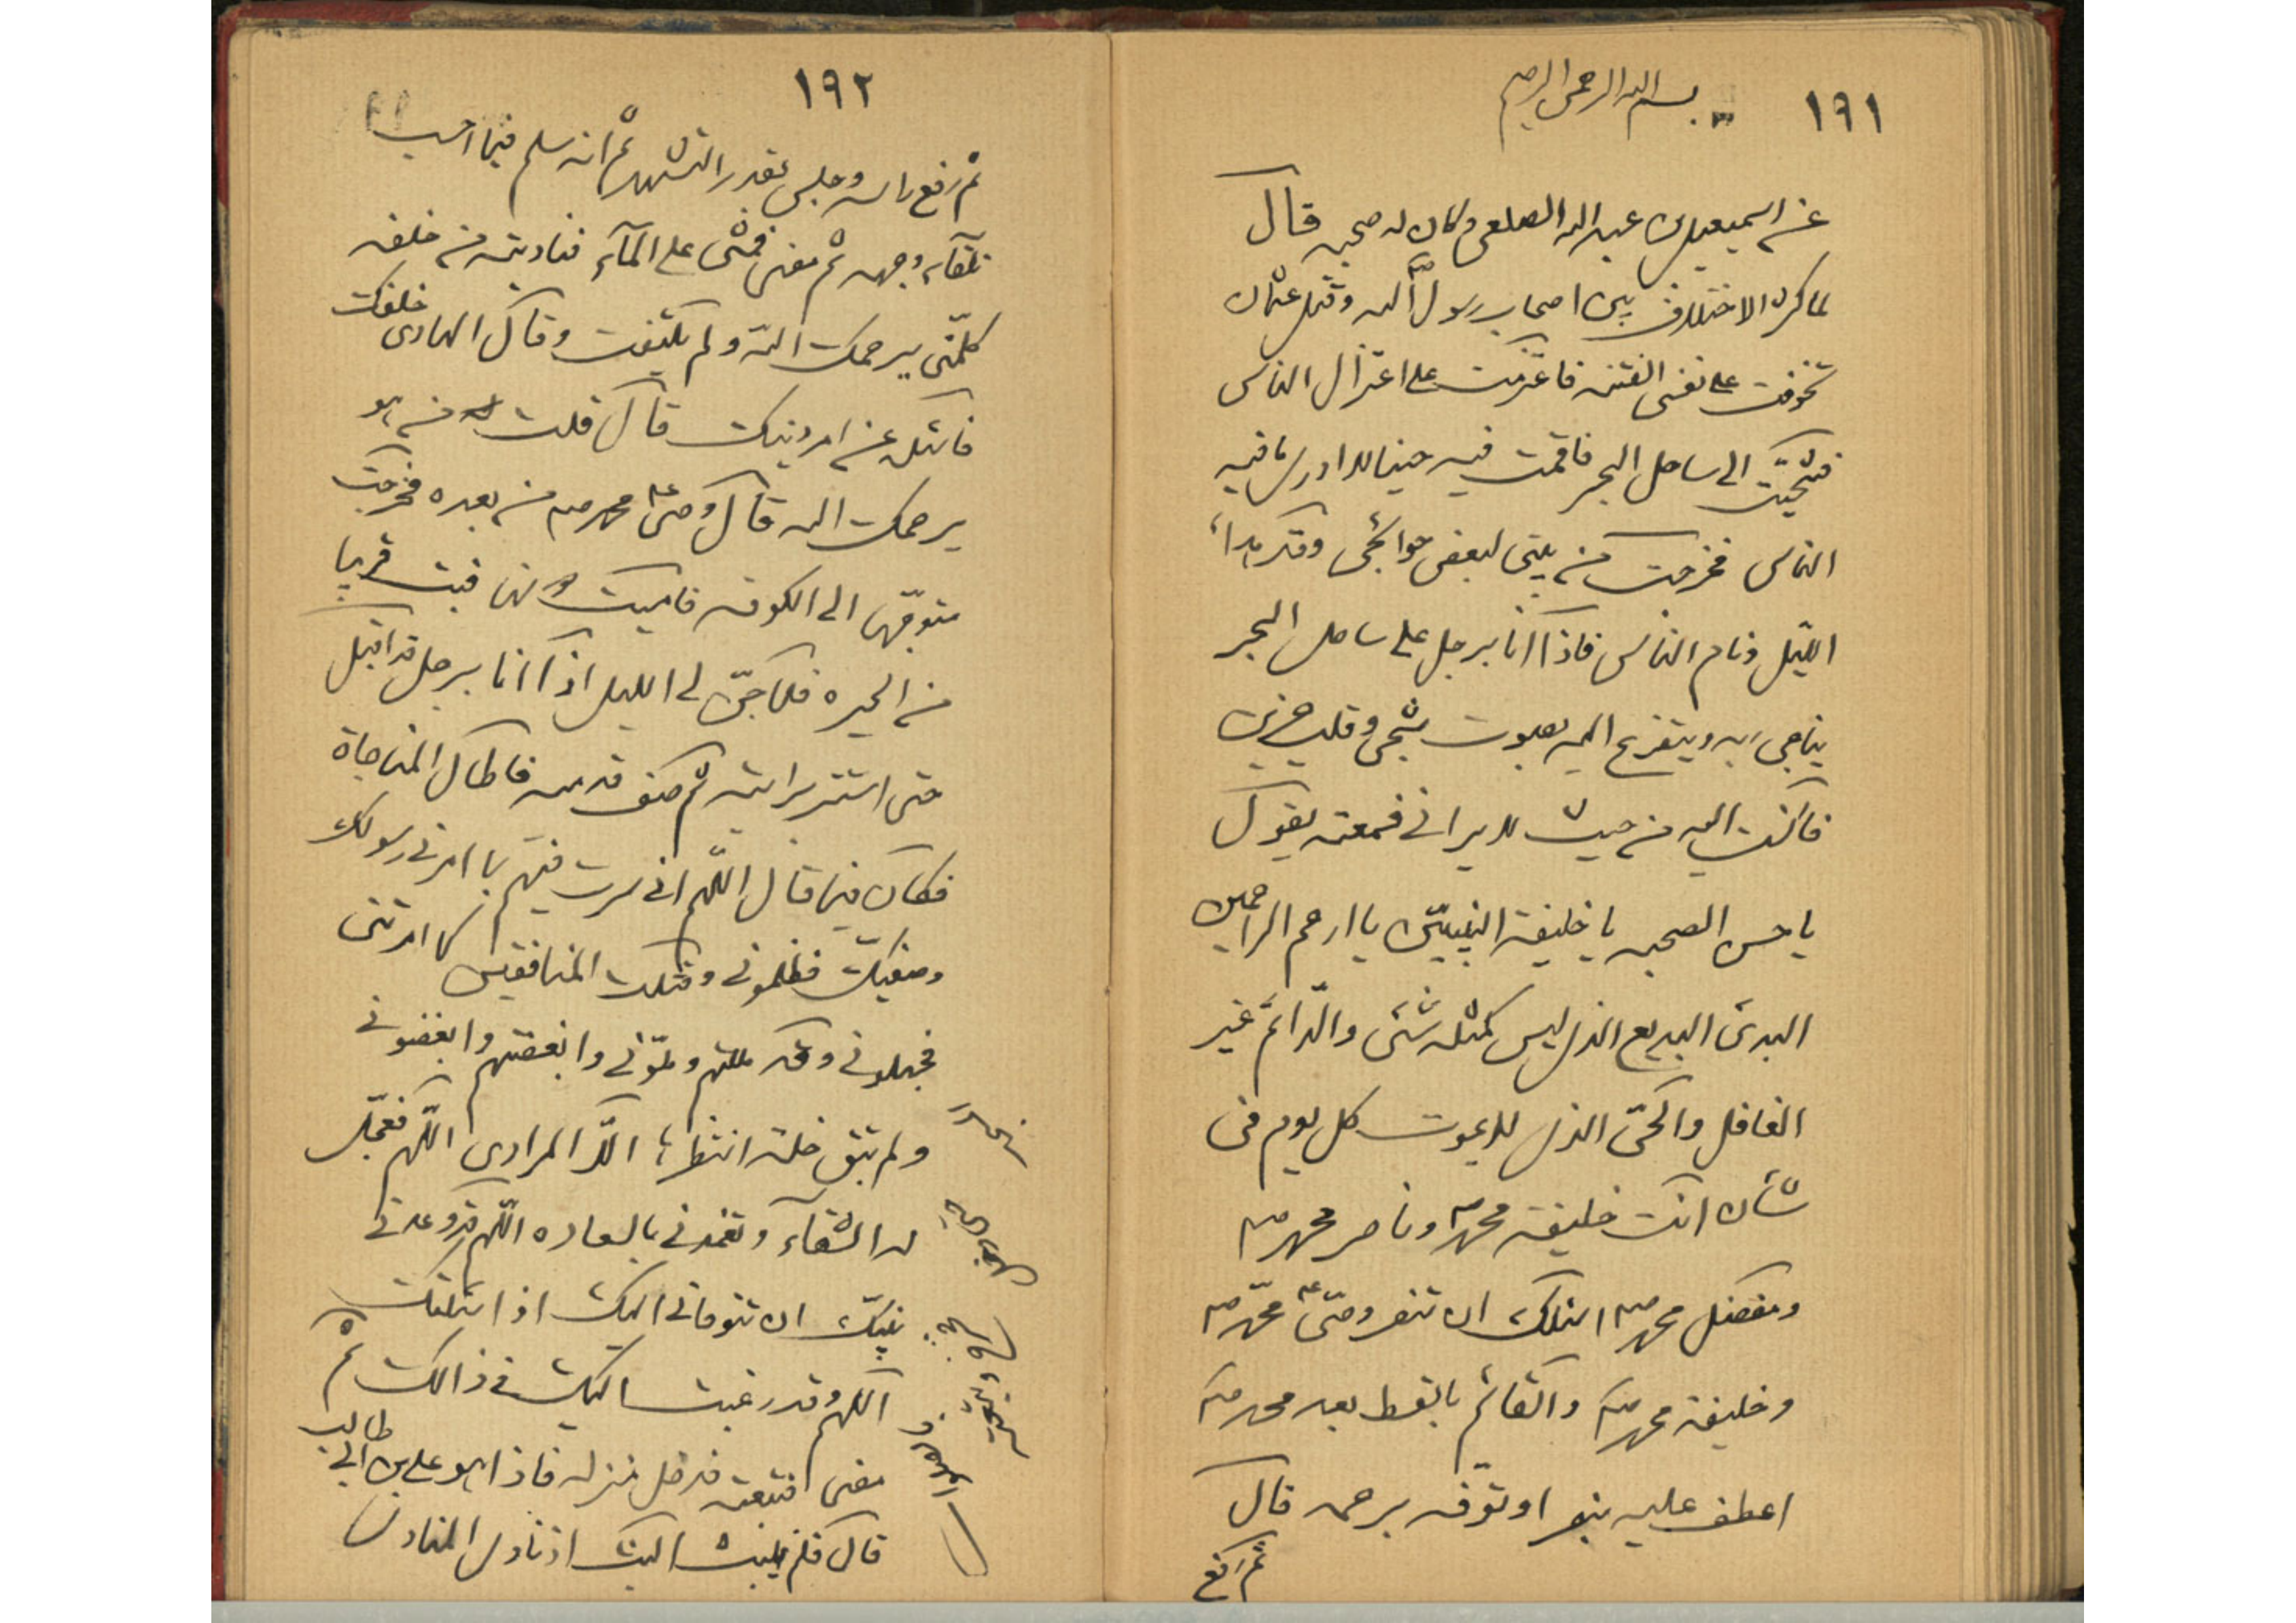 ١٩١
بسم الله الرحمن الرحيم
عن اسمعيل بن عبد الله الصلعى وكان له صحبه قال
لما كثر الاختلاف بين اصحاب رسول الله وقتل عثمان
تخوفت على نفسى الفتنه فاعتزمت على اعتزال الناس
فتنحيت الى ساحل البحر فاقمت فيه حينا لا ادرى ما فيه
الناس فخرجت من بيتى لبعض حوائجى وقد هدأ
الليل ونام الناس فاذا انا برجل على ساحل البحر
يناجى ربه ويتضرع اليه بصوت شجى وقلب حزين
فانصت اليه من حيث لا يرانى فسمعته يقول
يا حسن الصحبه يا خليفة النبيين يا ارحم الراحمين
البدئ البديع الذى ليس كمثله شئ والدائم غير
الغافل والحى الذى لا يموت كل يوم فى
شأن انت خليفة محمد وناصر محمد
ومفضل محمد اسئلك ان تنصر وصى محمد
وخليفة محمد والقائم بالقسط بعد محمد
اعطف عليه بنصر او توفه برحمه قال
ثم رفع
١٩٢
ثم رفع راسه وجلس بقدر التشهد ثم انه سلم فيما احسب
تلقاء وجهه ثم مضى فمشى على الماء فناديته من خلفه
كلمنى يرحمك الله ولم يلتفت وقال الهادى خلفك
فاسئله عن امر دينك قال قلت من هو
يرحمك الله قال وصى محمد من بعده فخرجت
متوجها الى الكوفه فامسيت دونها فبت قريبا
من الحيره فلما جن لى الليل اذا انا برجل قد اقبل
حتى استتر برابيه ثم صف قدميه فاطال المناجاة
فكان فيما قال اللهم انى سرت فيهم بما امرنى رسولك
وصفيك فظلمونى وقتلت المنافقين كما امرتنى
فجهلونى وقد مللتهم وملونى وابغضتهم وابغضونى
ولم تبق خلة انتظرها الا المرادى اللهم فعجل
له الشقاء وتغمدنى بالسعاده اللهم قد وعدنى
نبيك ان تتوفانى اليك اذا سئلتك
اللهم وقد رغبت اليك فى ذالك ثم
مضى فتبعته فدخل منزله فاذا هو على بن ابى طالب
قال فلم يلبث اذ نادى المنادى